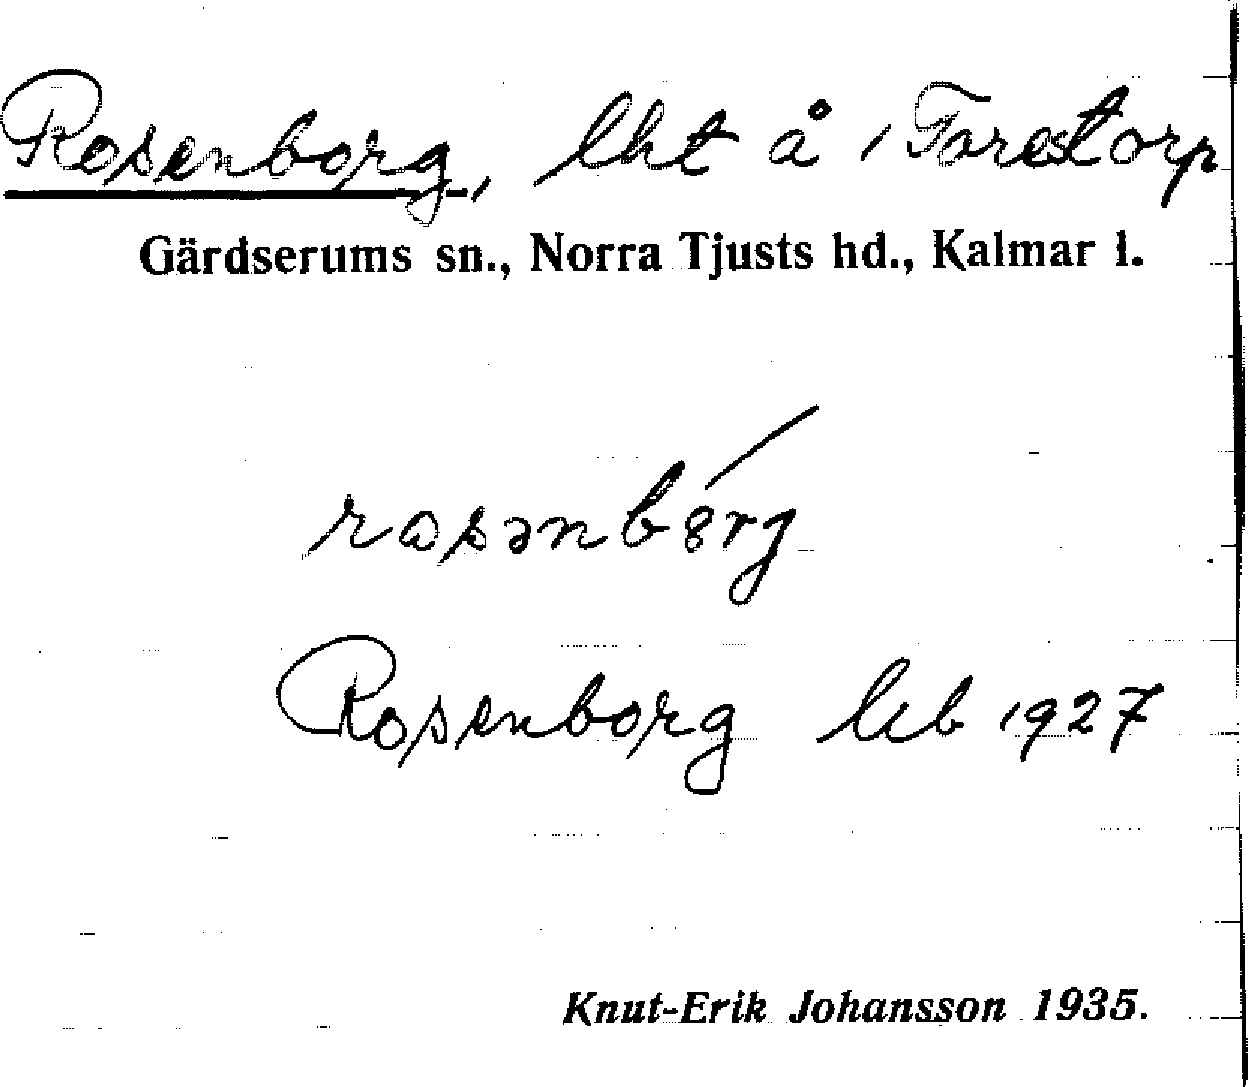 Rosenborg, lht å 1 Torestorp
Gärdserums sn., Norra Tjusts hd., Kalmar l.
rosənbórg
Rosenborg leb 1927
Knut-Erik Johansson 1935.